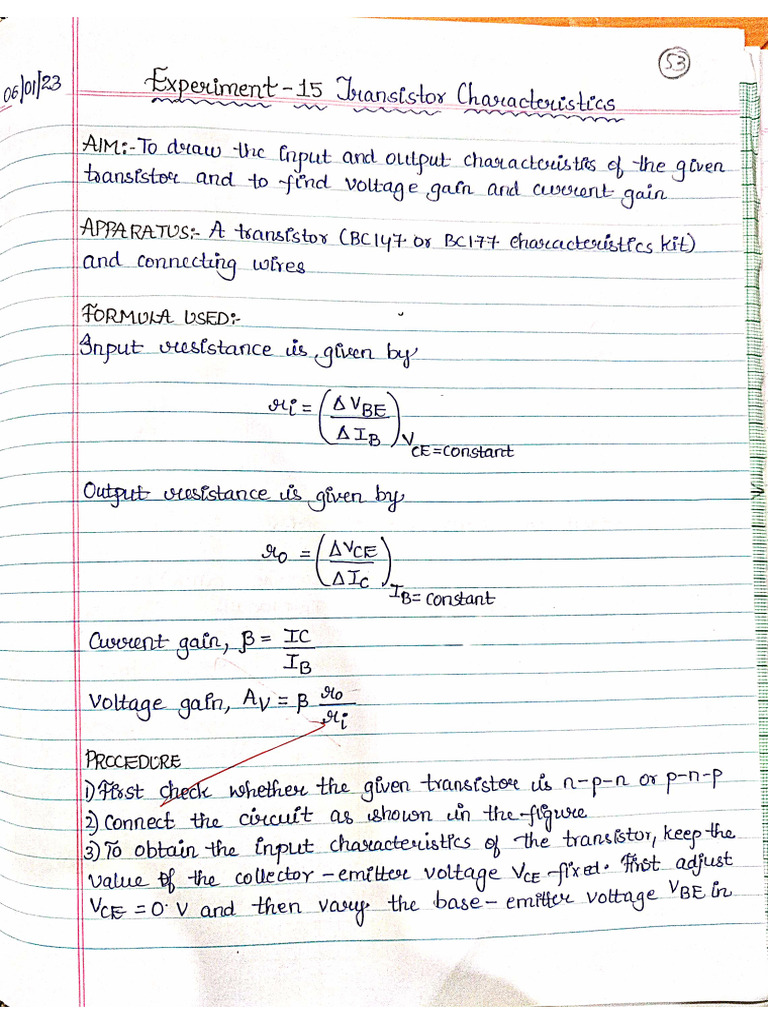 53
06/01/23
Experiment-15 Transistor Characteristics
AIM:-To draw the input and output characteristics of the given
transistor and to find voltage gain and current gain
APPARATUS:- A transistor (BC147 or BC177 characteristics kit)
and connecting wires
FORMULA USED:-
Input resistance is given by
ri = (ΔVBE / ΔIB) VCE=constant
Output resistance is given by
ro = (ΔVCE / ΔIC) IB=constant
Current gain, β = IC / IB
Voltage gain, AV = β ro / ri
PROCEDURE
1) First check whether the given transistor is n-p-n or p-n-p
2) Connect the circuit as shown in the figure
3) To obtain the input characteristics of the transistor, keep the
value of the collector-emitter voltage VCE fixed. First adjust
VCE = 0 V and then vary the base-emitter voltage VBE in